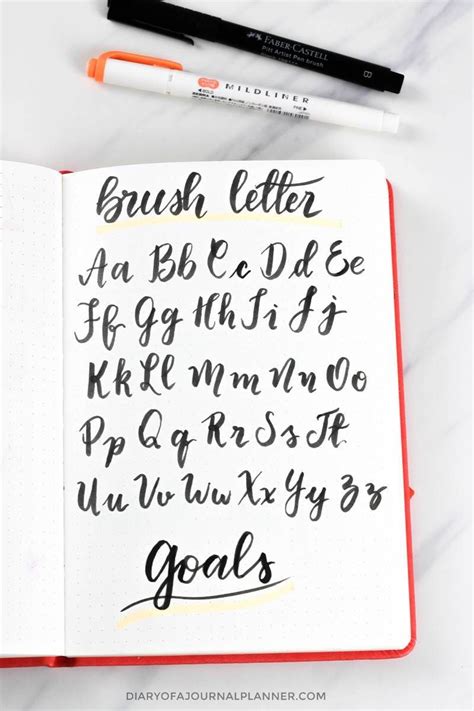 FABER-CASTELL
Pitt Artist Pen brush
B
MILDLINER
brush letter
Aa Bb Cc Dd Ee
Ff Gg Hh Ii Jj
Kk Ll Mm Nn Oo
Pp Qq Rr Ss Tt
Uu Vv Ww Xx Yy Zz
goals
DIARYOFAJOURNALPLANNER.COM